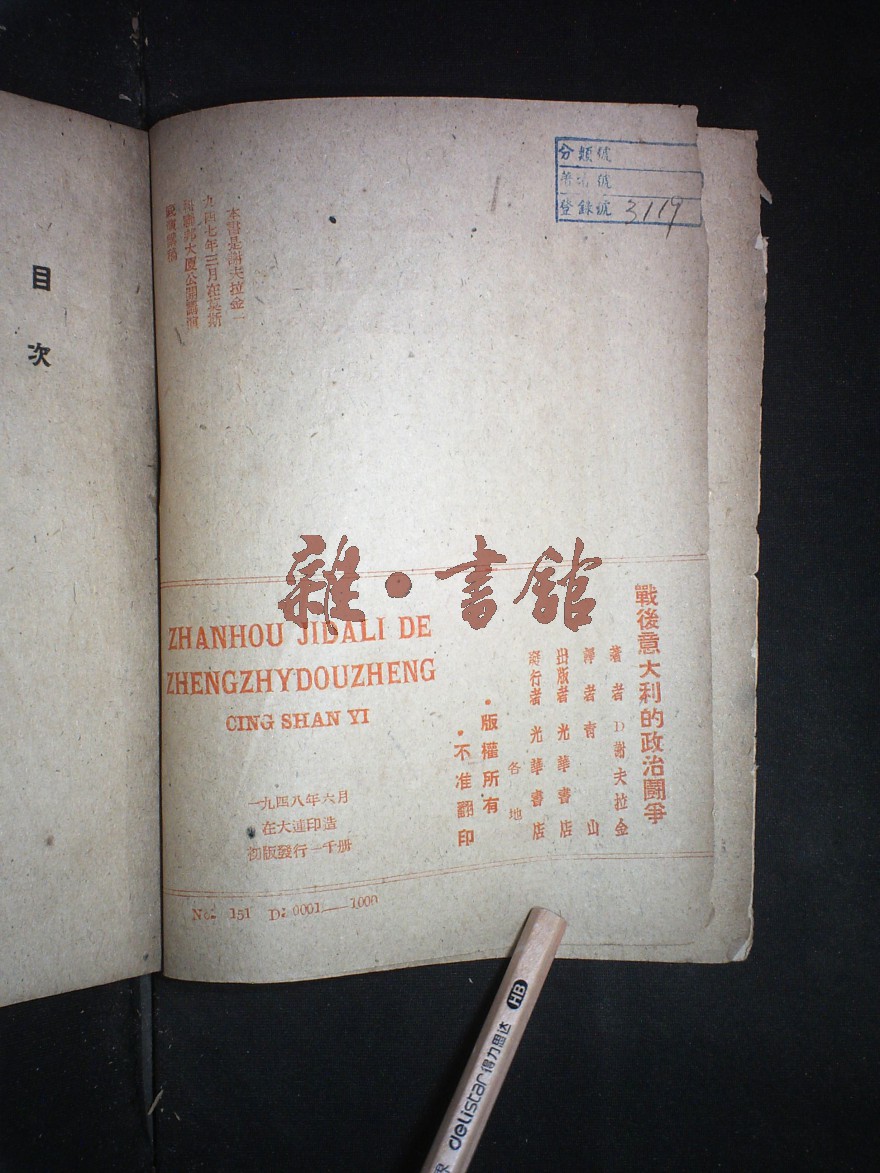 目次
分類號
登錄號 3119
本書是謝夫拉金一
九四七年三月在莫斯
大廈公開講演
雜·書館
戰後意大利的政治鬭爭
著者 D謝夫拉金
譯者 青山
出版者 光華書店
發行者 光華書店
各地
·版權所有
·不准翻印
ZHANHOU JIDALI DE
ZHENGZHYDOUZHENG
CING SHAN YI
一九四八年六月
在大連印造
初版發行一千册
No: 151 D: 0001—1000
HB
delistar得力思达